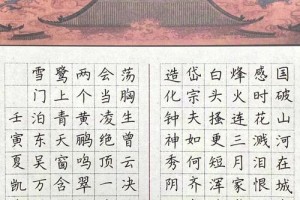 国破山河在城
感时花溅泪恨
烽火连三月家
白头搔更短浑
岱宗夫如何齐
造化钟神秀阴
荡胸生曾云决
会当凌绝顶一
两个黄鹂鸣翠
鹭上青天窗含
雪门泊东吴万
壬寅夏凯